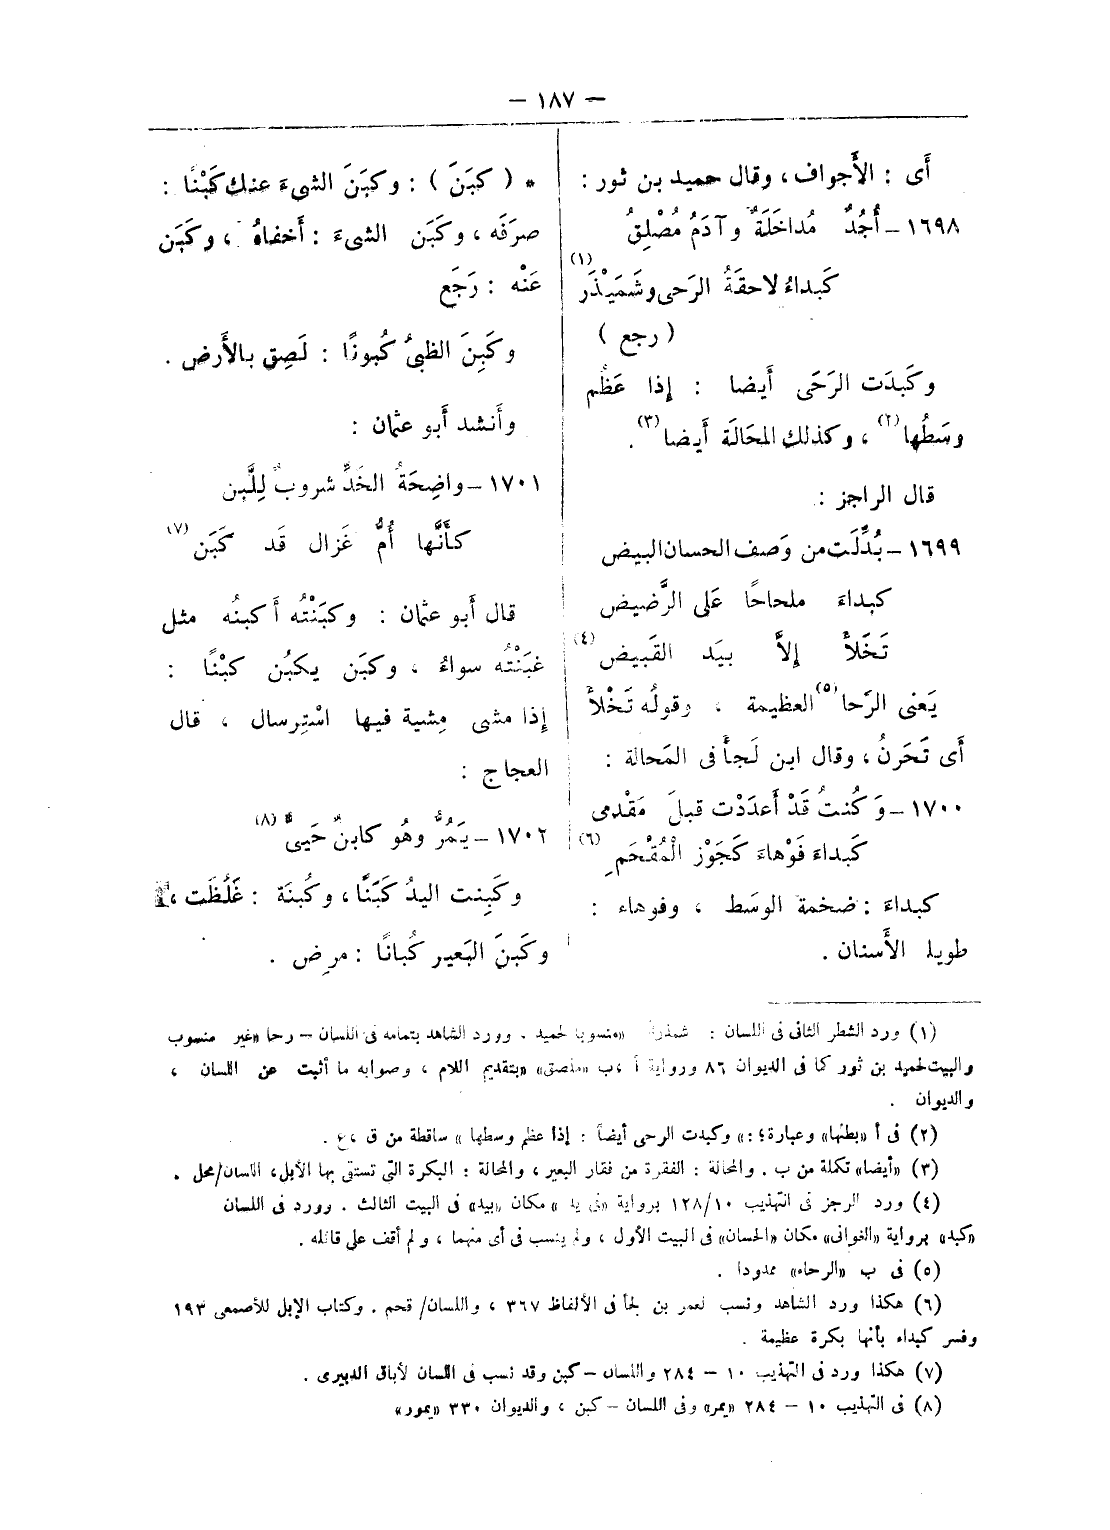 — ١٨٧ —
أَى : الأَجواف ، وقال حميد بن ثور :
١٦٩٨ – أُجُدٌ مُداخَلَةٌ وآدَمُ مُصْلِقُ
كَبداءُ لاحقَةُ الرَحى وشَمَيْذَر (١)
( رجع )
وكَبدَت الرَحَى أَيضا : إذا عَظُم
وسَطُها (٢) ، وكذلك المحَالَة أَيضا (٣) .
قال الراجز :
١٦٩٩ – بُدِّلَت من وَصف الحسان البيض
كبداءَ ملحاحًا عَلى الرَّضيض
تَخَلأُ إلاَّ بيَد القَبيض (٤)
يَعنى الرَحا (٥) العظيمة ، وقولُه تَخْلأُ
أَى تَحَرنُ ، وقال ابن لَجأَ فى المَحالة :
١٧٠٠ – وَكُنتُ قَدْ أَعدَدْت قبلَ مَقْدمى
كَبداءَ فَوْهاءَ كَجَوْز الْمُقْحَمِ (٦)
كبداءَ : ضخمة الوسَط ، وفوهاء :
طويلا الأَسنان .
* ( كبَنَ ) : وكبَنَ الشىءَ عنك كَبْنًا :
صرَفَه ، وكَبَن الشىءَ : أَخفاهُ ، وكَبَن
عَنْه : رَجَع
وكَبِنَ الظبىُ كُبونًا : لَصِق بالأَرض .
وأَنشد أَبو عثمان :
١٧٠١ – واضِحَةُ الخَدِّ شروبٌ لِلَّبن
كأَنَّها أُمُّ غَزال قَد كَبَن (٧)
قال أَبو عثمان : وكبَنْتُه أَكبنُه مثل
غبَنْتُه سواءُ ، وكبَن يكبُن كبْنًا :
إذا مشى مِشية فيها اسْترِسال ، قال
العجاج :
١٧٠٢ – يَمُرُّ وهُو كابنٌ حَيىُّ (٨)
وكَبِنت اليدُ كَبَنًا ، وكُبنَة : غَلُظَت ،
وكَبنَ البَعير كُبانًا : مرِض .
(١) ورد الشطر الثانى فى اللسان : شمذر «منسوبا لحميد . وورد الشاهد بتمامه فى اللسان – رحا «غير منسوب
والبيت لحميد بن ثور كما فى الديوان ٨٦ ورواية أ ، ب «ملصق» «بتقديم اللام ، وصوابه ما أثبت عن اللسان ،
والديوان .
(٢) فى أ «بطنها» وعبارة ؛ : » وكبدت الرحى أيضاً : إذا عظم وسطها » ساقطة من ق ، ع .
(٣) «أيضا» تكملة من ب . والمحالة : الفقرة من فقار البعير ، والمحالة : البكرة التى تستقى بها الأبل ، اللسان/محل .
(٤) ورد الرجز فى التهذيب ١٠/١٢٨ برواية «فى يد » مكان «بيد» فى البيت الثالث . وورد فى اللسان
«كبد» برواية «الغوانى» مكان «الحسان» فى البيت الأول ، ولم ينسب فى أى منهما ، ولم أقف على قائله .
(٥) فى ب «الرحاء» ممدودا .
(٦) هكذا ورد الشاهد ونسب لعمر بن لجأ فى الألفاظ ٣٦٧ ، واللسان/ قحم . وكتاب الإبل للأصمعى ١٩٣
وفسر كبداء بأنها بكرة عظيمة .
(٧) هكذا ورد فى التهذيب ١٠ – ٢٨٤ واللسان – كبن وقد نسب فى اللسان لأباق الدبيرى .
(٨) فى التهذيب ١٠ – ٢٨٤ «يمر» وفى اللسان – كبن ، والديوان ٣٣٠ «يمور»